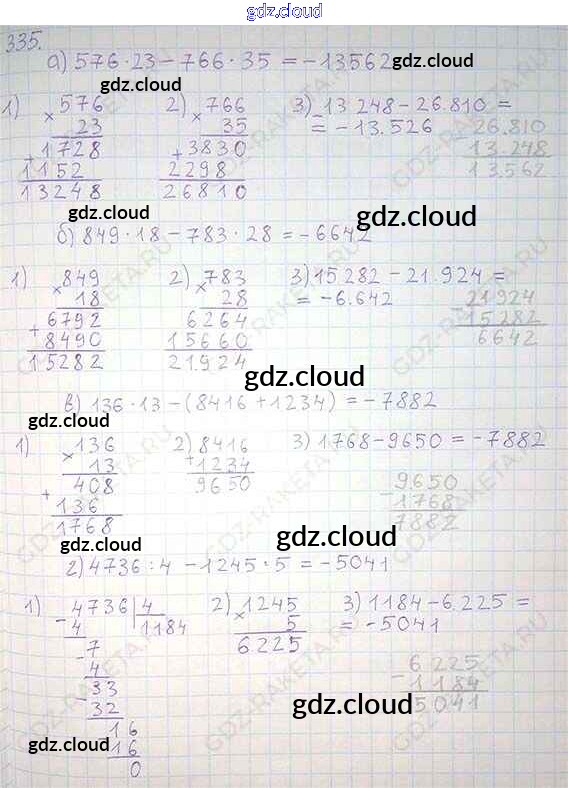 gdz.cloud
335.
а) 576 · 23 – 766 · 35 = – 13562
gdz.cloud
gdz.cloud
1) × 576
23
+ 1728
1152
13248
2) × 766
35
+ 3830
2298
26810
3) 13 248 – 26.810 =
= – 13.526
– 26.810
13.248
13.562
gdz.cloud
gdz.cloud
gdz.cloud
б) 849 · 18 – 783 · 28 = – 6642
1) × 849
18
+ 6792
8490
15282
2) × 783
28
6264
15660
21.924
3) 15.282 – 21.924 =
= – 6.642
21.924
15.282
6642
gdz.cloud
gdz.cloud
в) 136 · 13 – (8416 + 1234) = – 7882
gdz.cloud
1) × 136
13
+ 408
136
1768
2) 8416
+ 1234
9650
3) 1768 – 9650 = – 7882
– 9650
1768
7882
gdz.cloud
gdz.cloud
г) 4736 : 4 – 1245 · 5 = – 5041
1) – 4736 | 4
4 1184
– 7
4
– 33
32
– 16
16
0
2) × 1245
5
6.225
3) 1184 – 6.225 =
= – 5041
– 6225
1184
5041
gdz.cloud
gdz.cloud
gdz.cloud
GDZ-RAKETA.RU